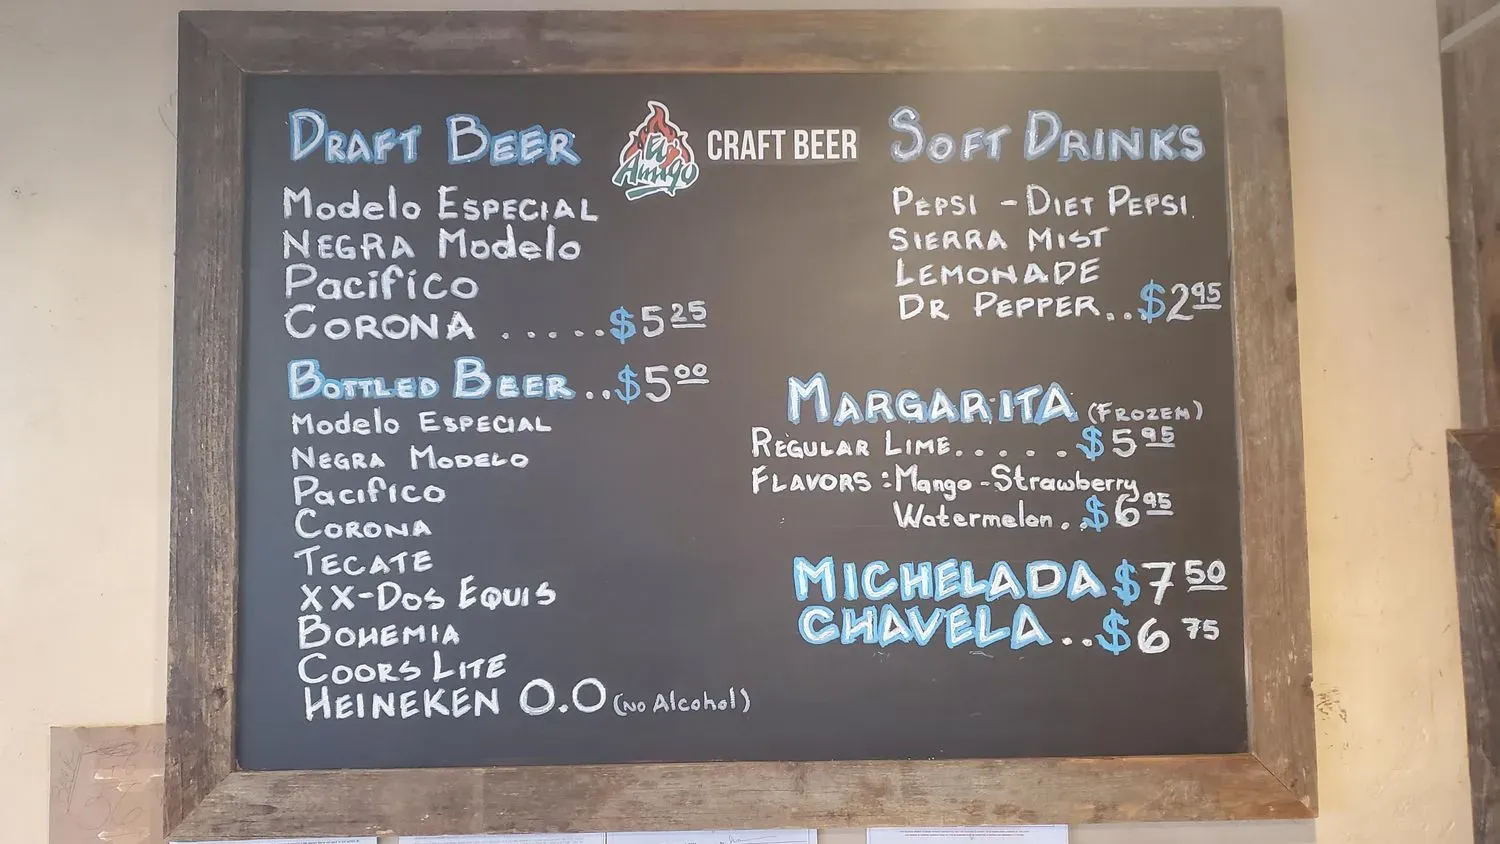 DRAFT BEER
Modelo ESPECIAL
NEGRA Modelo
Pacifico
CORONA .....$5 25
BOTTLED BEER ..$5 00
Modelo ESPECIAL
NEGRA MODELO
Pacifico
CORONA
TECATE
XX-DOS EQUIS
BOHEMIA
COORS LITE
HEINEKEN 0.0 (No Alcohol)
El Amigo
CRAFT BEER
SOFT DRINKS
PEPSI - DIET PEPSI
SIERRA MIST
LEMONADE
DR PEPPER..$2 95
MARGARITA (FROZEN)
REGULAR LIME.....$5 95
FLAVORS : Mango - Strawberry
Watermelon..$6 95
MICHELADA $7 50
CHAVELA..$6 75